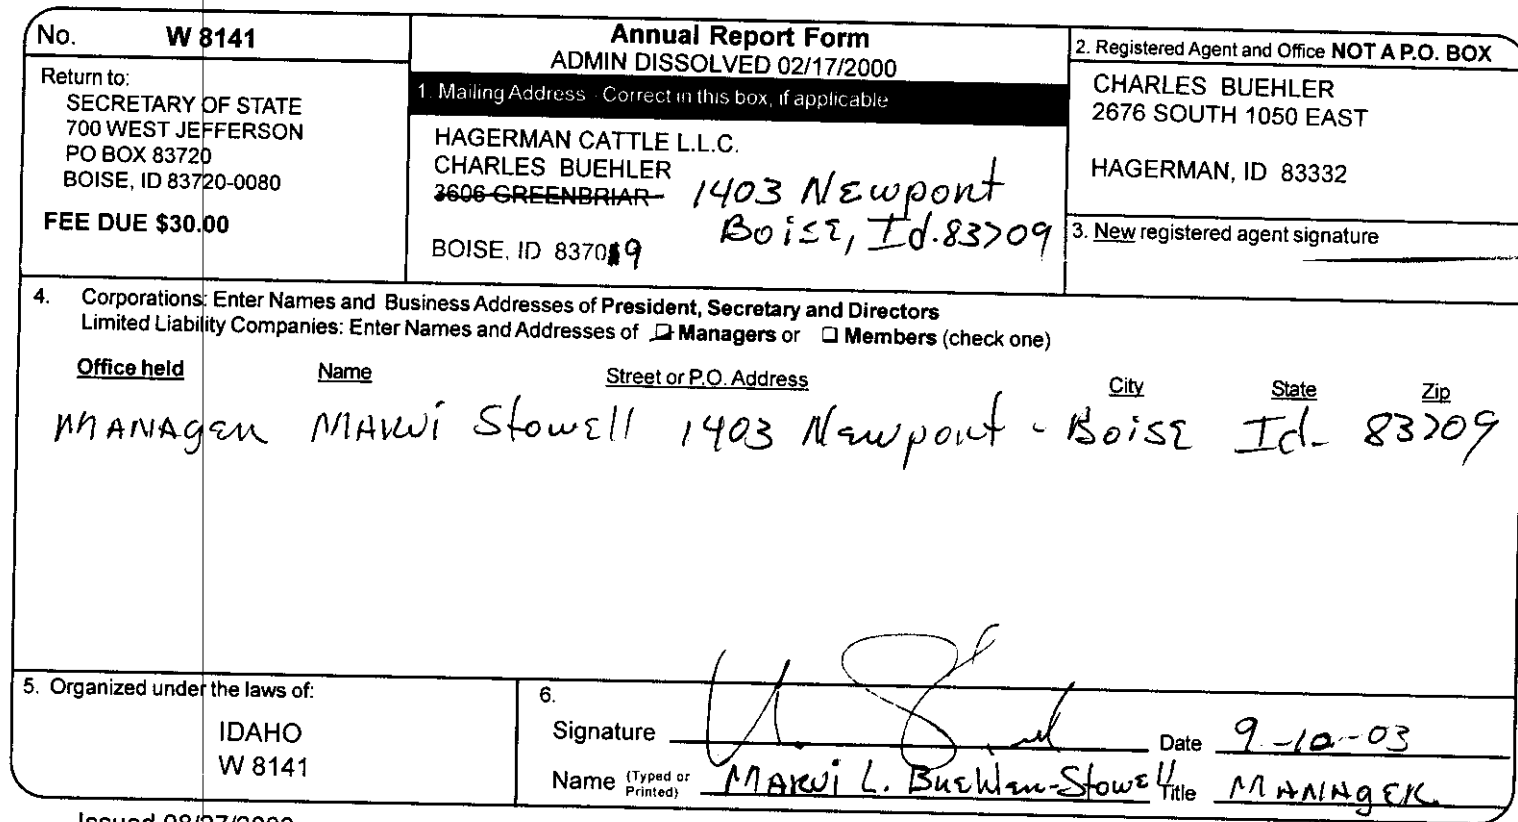 No. W 8141
Return to:
SECRETARY OF STATE
700 WEST JEFFERSON
PO BOX 83720
BOISE, ID 83720-0080
FEE DUE $30.00
Annual Report Form
ADMIN DISSOLVED 02/17/2000
1. Mailing Address - Correct in this box, if applicable
HAGERMAN CATTLE L.L.C.
CHARLES BUEHLER
3606 GREENBRIAR 1403 Newport
Boise, Id. 83709
BOISE, ID 83709
2. Registered Agent and Office NOT A P.O. BOX
CHARLES BUEHLER
2676 SOUTH 1050 EAST
HAGERMAN, ID 83332
3. New registered agent signature
4. Corporations: Enter Names and Business Addresses of President, Secretary and Directors
Limited Liability Companies: Enter Names and Addresses of Managers or Members (check one)
Office held Name Street or P.O. Address City State Zip
MANAGER Stowell 1403 Newport - Boise Id- 83709
5. Organized under the laws of:
IDAHO
W 8141
6.
Signature Date 9-10-03
Name (Typed or Printed) L. Buehler-Stowell Title MANAGER